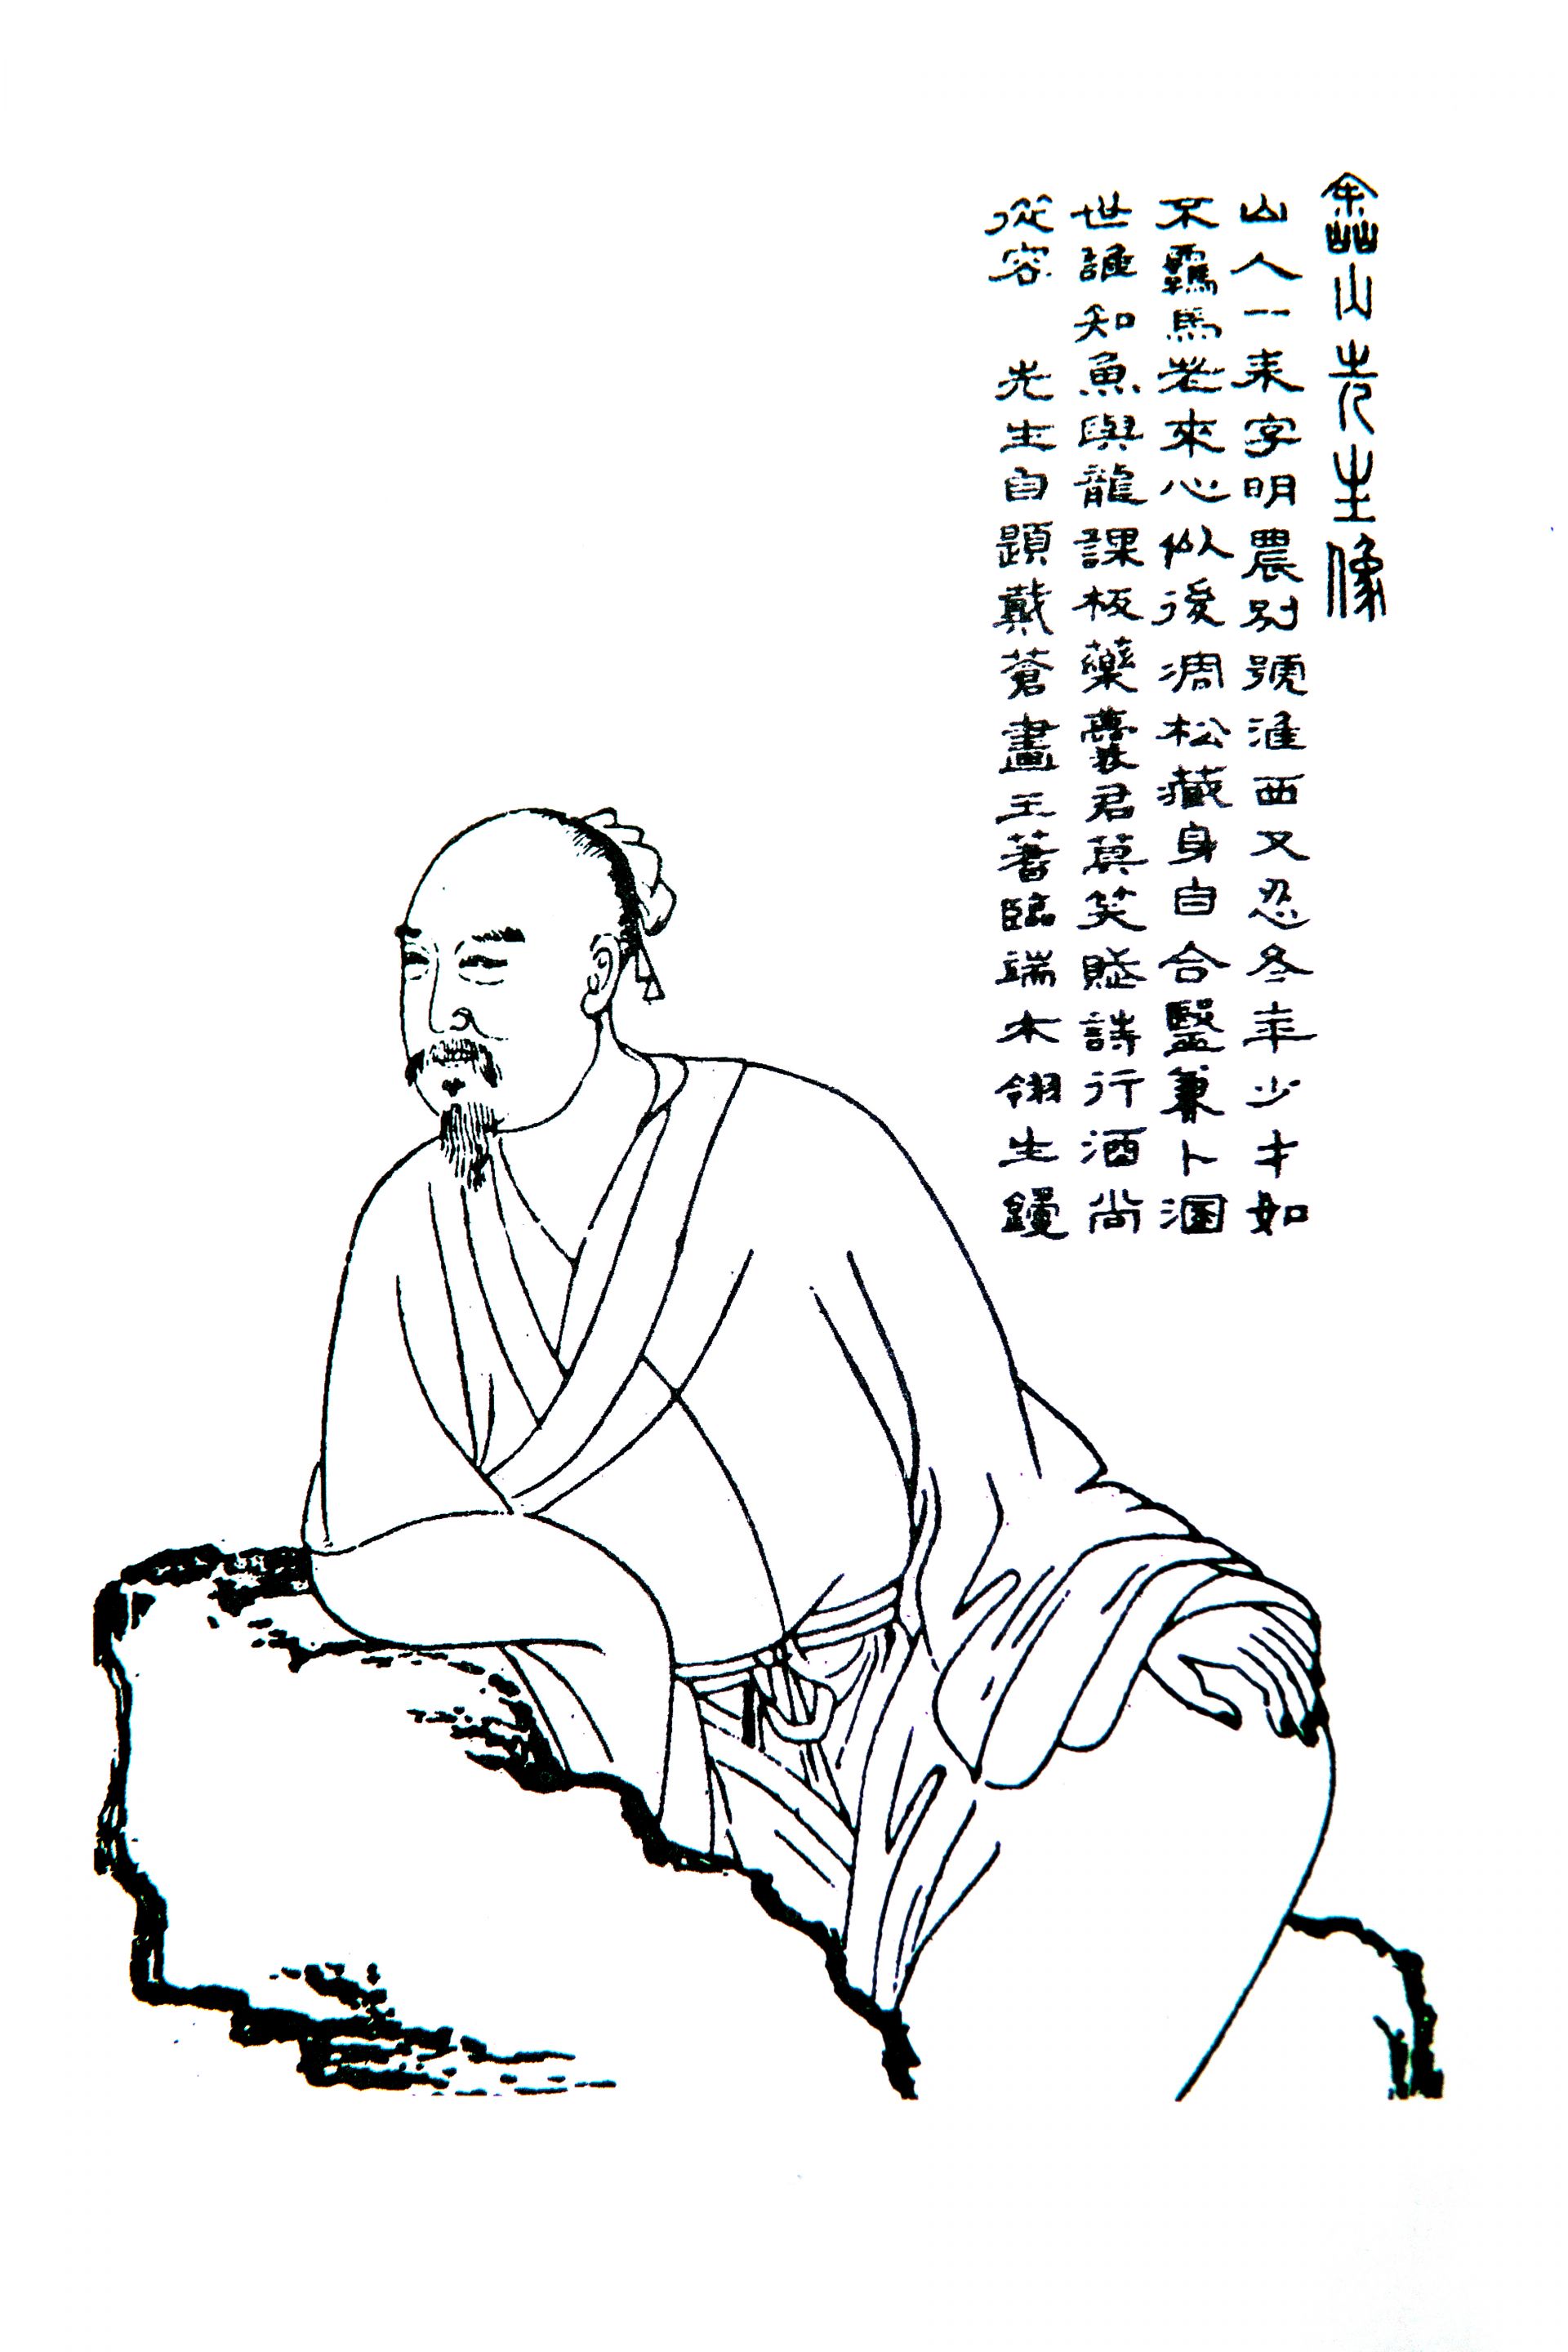 嵞山先生像
山人一耒字明農別號淮西又忍冬年少才如
不羈馬老來心似後凋松藏身自合醫兼卜溷
世誰知魚與龍課板藥囊君莫笑賦詩行酒尚
從容　先生自題戴蒼畫王蓍臨端木翎生